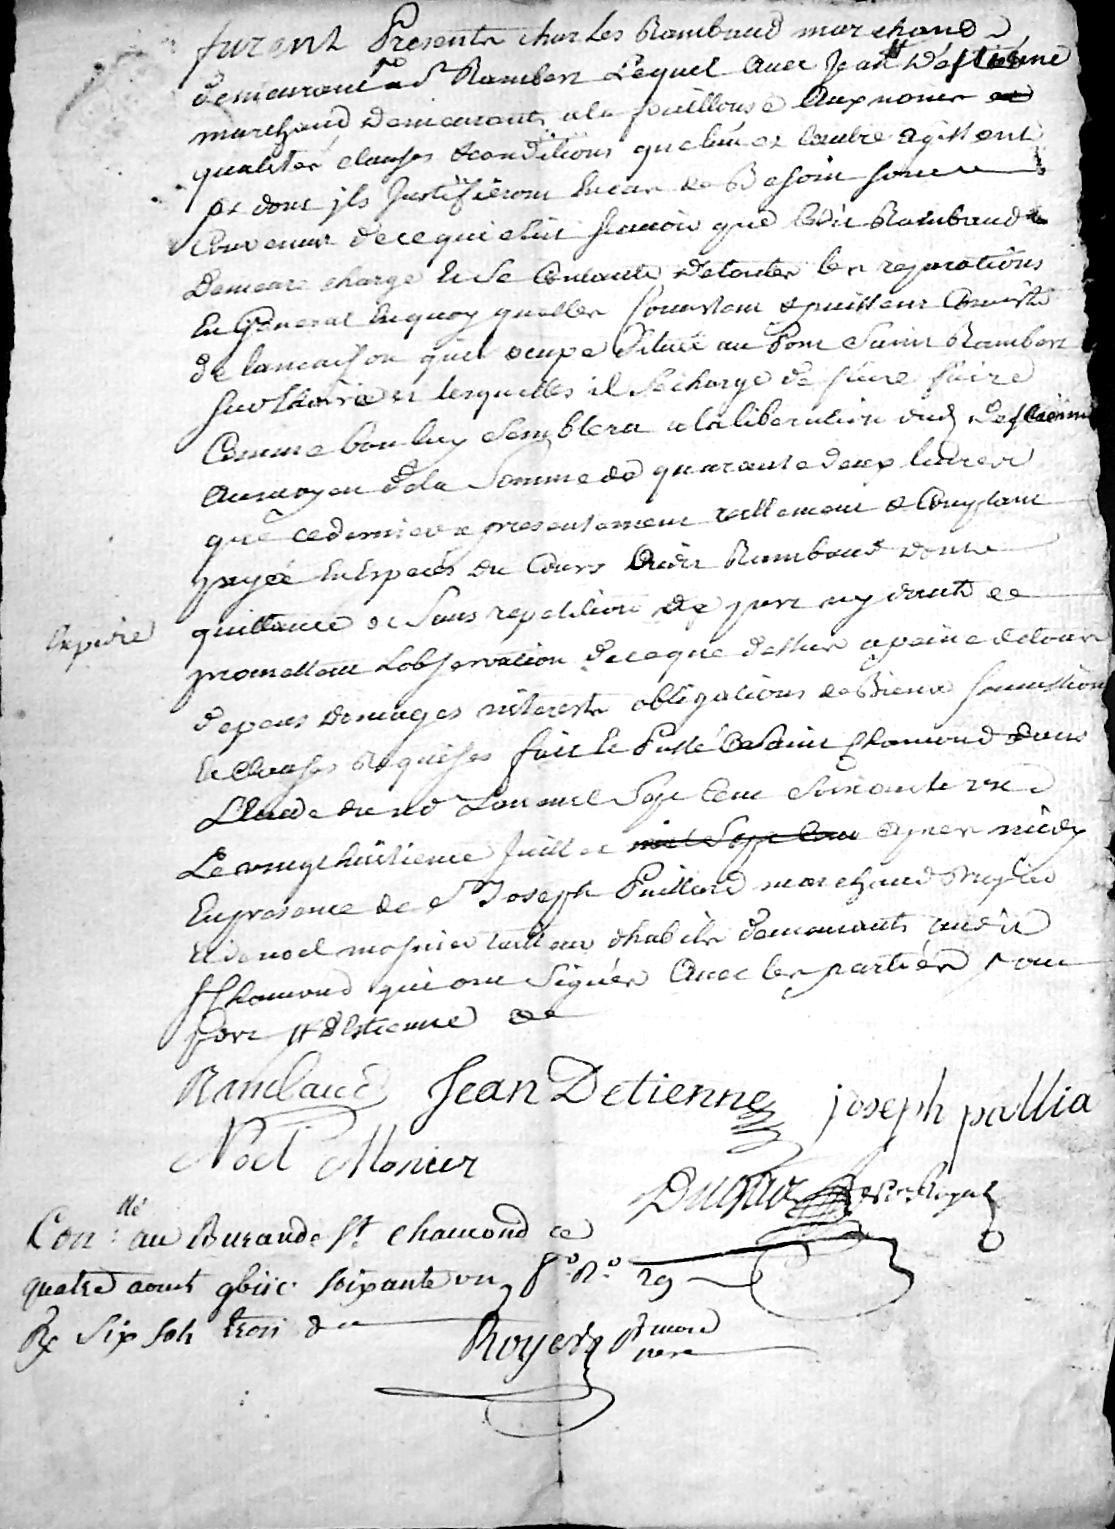 furent Presents charles Rambaud marchand
demeurant a St Rambert Lequel avec Jean Destienne
marchand demeurant a la fouillouse aux noms
qualités clauses & conditions que lun et lautre agissent
et dont jls Justifieront En cas de Besoin sont
Convenus de ce qui suit scavoir que ledit Rambaud
Demeure chargé Et se Contante de toutes les reparations
En General En quoy quelles Soint & puissent Consister
de la maison quil occupe Située au Pont Saint Rambert
sur Loire et lesquelles il se charge de faire faire
Comme bon luy semblera a la liberation dud Destienne
au moyen de la Somme de quarante deux livres
que ce dernier a presentement reellement & Comptant
payée En Especes du Cours audit Rambaud dont
quittance & Sans repetition de part ny dautre &
Expedie
promettant Lobservation de ce que dessus a peine de tous
depens domages interests obligations de Biens soumissions
Et Clauses Requises fait et Passé a Saint Chamond dans
L'Etude du nore Lan mil Sept Cent Soixante un
Le vingt huitieme Juillet mil Sept Cent apres midy
En presence de sr Joseph Palliard marchand
Et de noel mosnier tailleur dhabits demeurants audit
St Chamond qui ont Signés avec les parties
Destienne &
Rambaud Jean Detienne joseph pallia
Noel Monier
Con: llé au Bureau de St chamond ce
quatre aoust gbiic soixante un fo Ro 29
Rx Six sols trois d
Royer